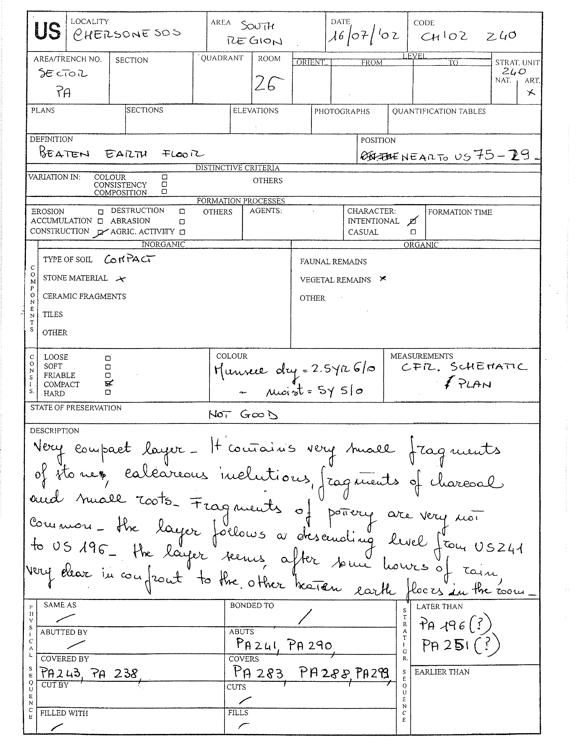 US
LOCALITY CHERSONESOS
AREA SOUTH REGION
DATE 16/07/'02
CODE CH'02 240
AREA/TRENCH NO. SECTOR PA
SECTION
QUADRANT
ROOM 26
LEVEL
ORIENT. FROM TO
STRAT. UNIT 240
NAT. ART. x
PLANS
SECTIONS
ELEVATIONS
PHOTOGRAPHS
QUANTIFICATION TABLES
DEFINITION
BEATEN EARTH FLOOR
POSITION
NEAR TO US 75-29-
DISTINCTIVE CRITERIA
VARIATION IN: COLOUR
CONSISTENCY
COMPOSITION
OTHERS
FORMATION PROCESSES
EROSION DESTRUCTION OTHERS AGENTS: CHARACTER: FORMATION TIME
ACCUMULATION ABRASION INTENTIONAL
CONSTRUCTION AGRIC. ACTIVITY CASUAL
INORGANIC ORGANIC
COMPONENTS
TYPE OF SOIL COMPACT
STONE MATERIAL x
CERAMIC FRAGMENTS
TILES
OTHER
FAUNAL REMAINS
VEGETAL REMAINS x
OTHER
CONSIS.
LOOSE
SOFT
FRIABLE
COMPACT
HARD
COLOUR
Munsell dry = 2.5YR 6/0
- moist = 5Y 5/0
MEASUREMENTS
CFR. SCHEMATIC
PLAN
STATE OF PRESERVATION
NOT GOOD
DESCRIPTION
Very compact layer - It contains very small fragments
of stones, calcareous inclutions, fragments of charcoal
and small roots - Fragments of pottery are very not
common - the layer follows a descending level from US241
to US 196 - the layer seems, after some hours of rain,
very clear in confront to the other beaten earth floors in the room -
PHYSICAL SEQUENCE
SAME AS
BONDED TO /
ABUTTED BY /
ABUTS
PA241, PA290,
COVERED BY
PA243, PA 238,
COVERS
PA 283 PA288, PA299
CUT BY
CUTS /
FILLED WITH /
FILLS /
STRATIGR. SEQUENCE
LATER THAN
PA 196 (?)
PA 251 (?)
EARLIER THAN